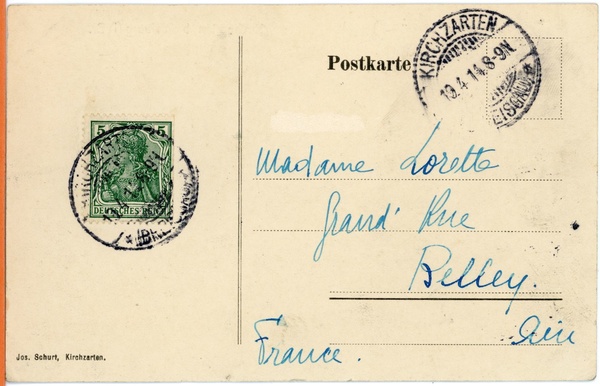 Postkarte
KIRCHZARTEN
19.4.14.8-9N
5 5
DEUTSCHES REICH
Madame Lorette
Grand' Rue
Belley.
Ain
France.
Jos. Schurt, Kirchzarten.